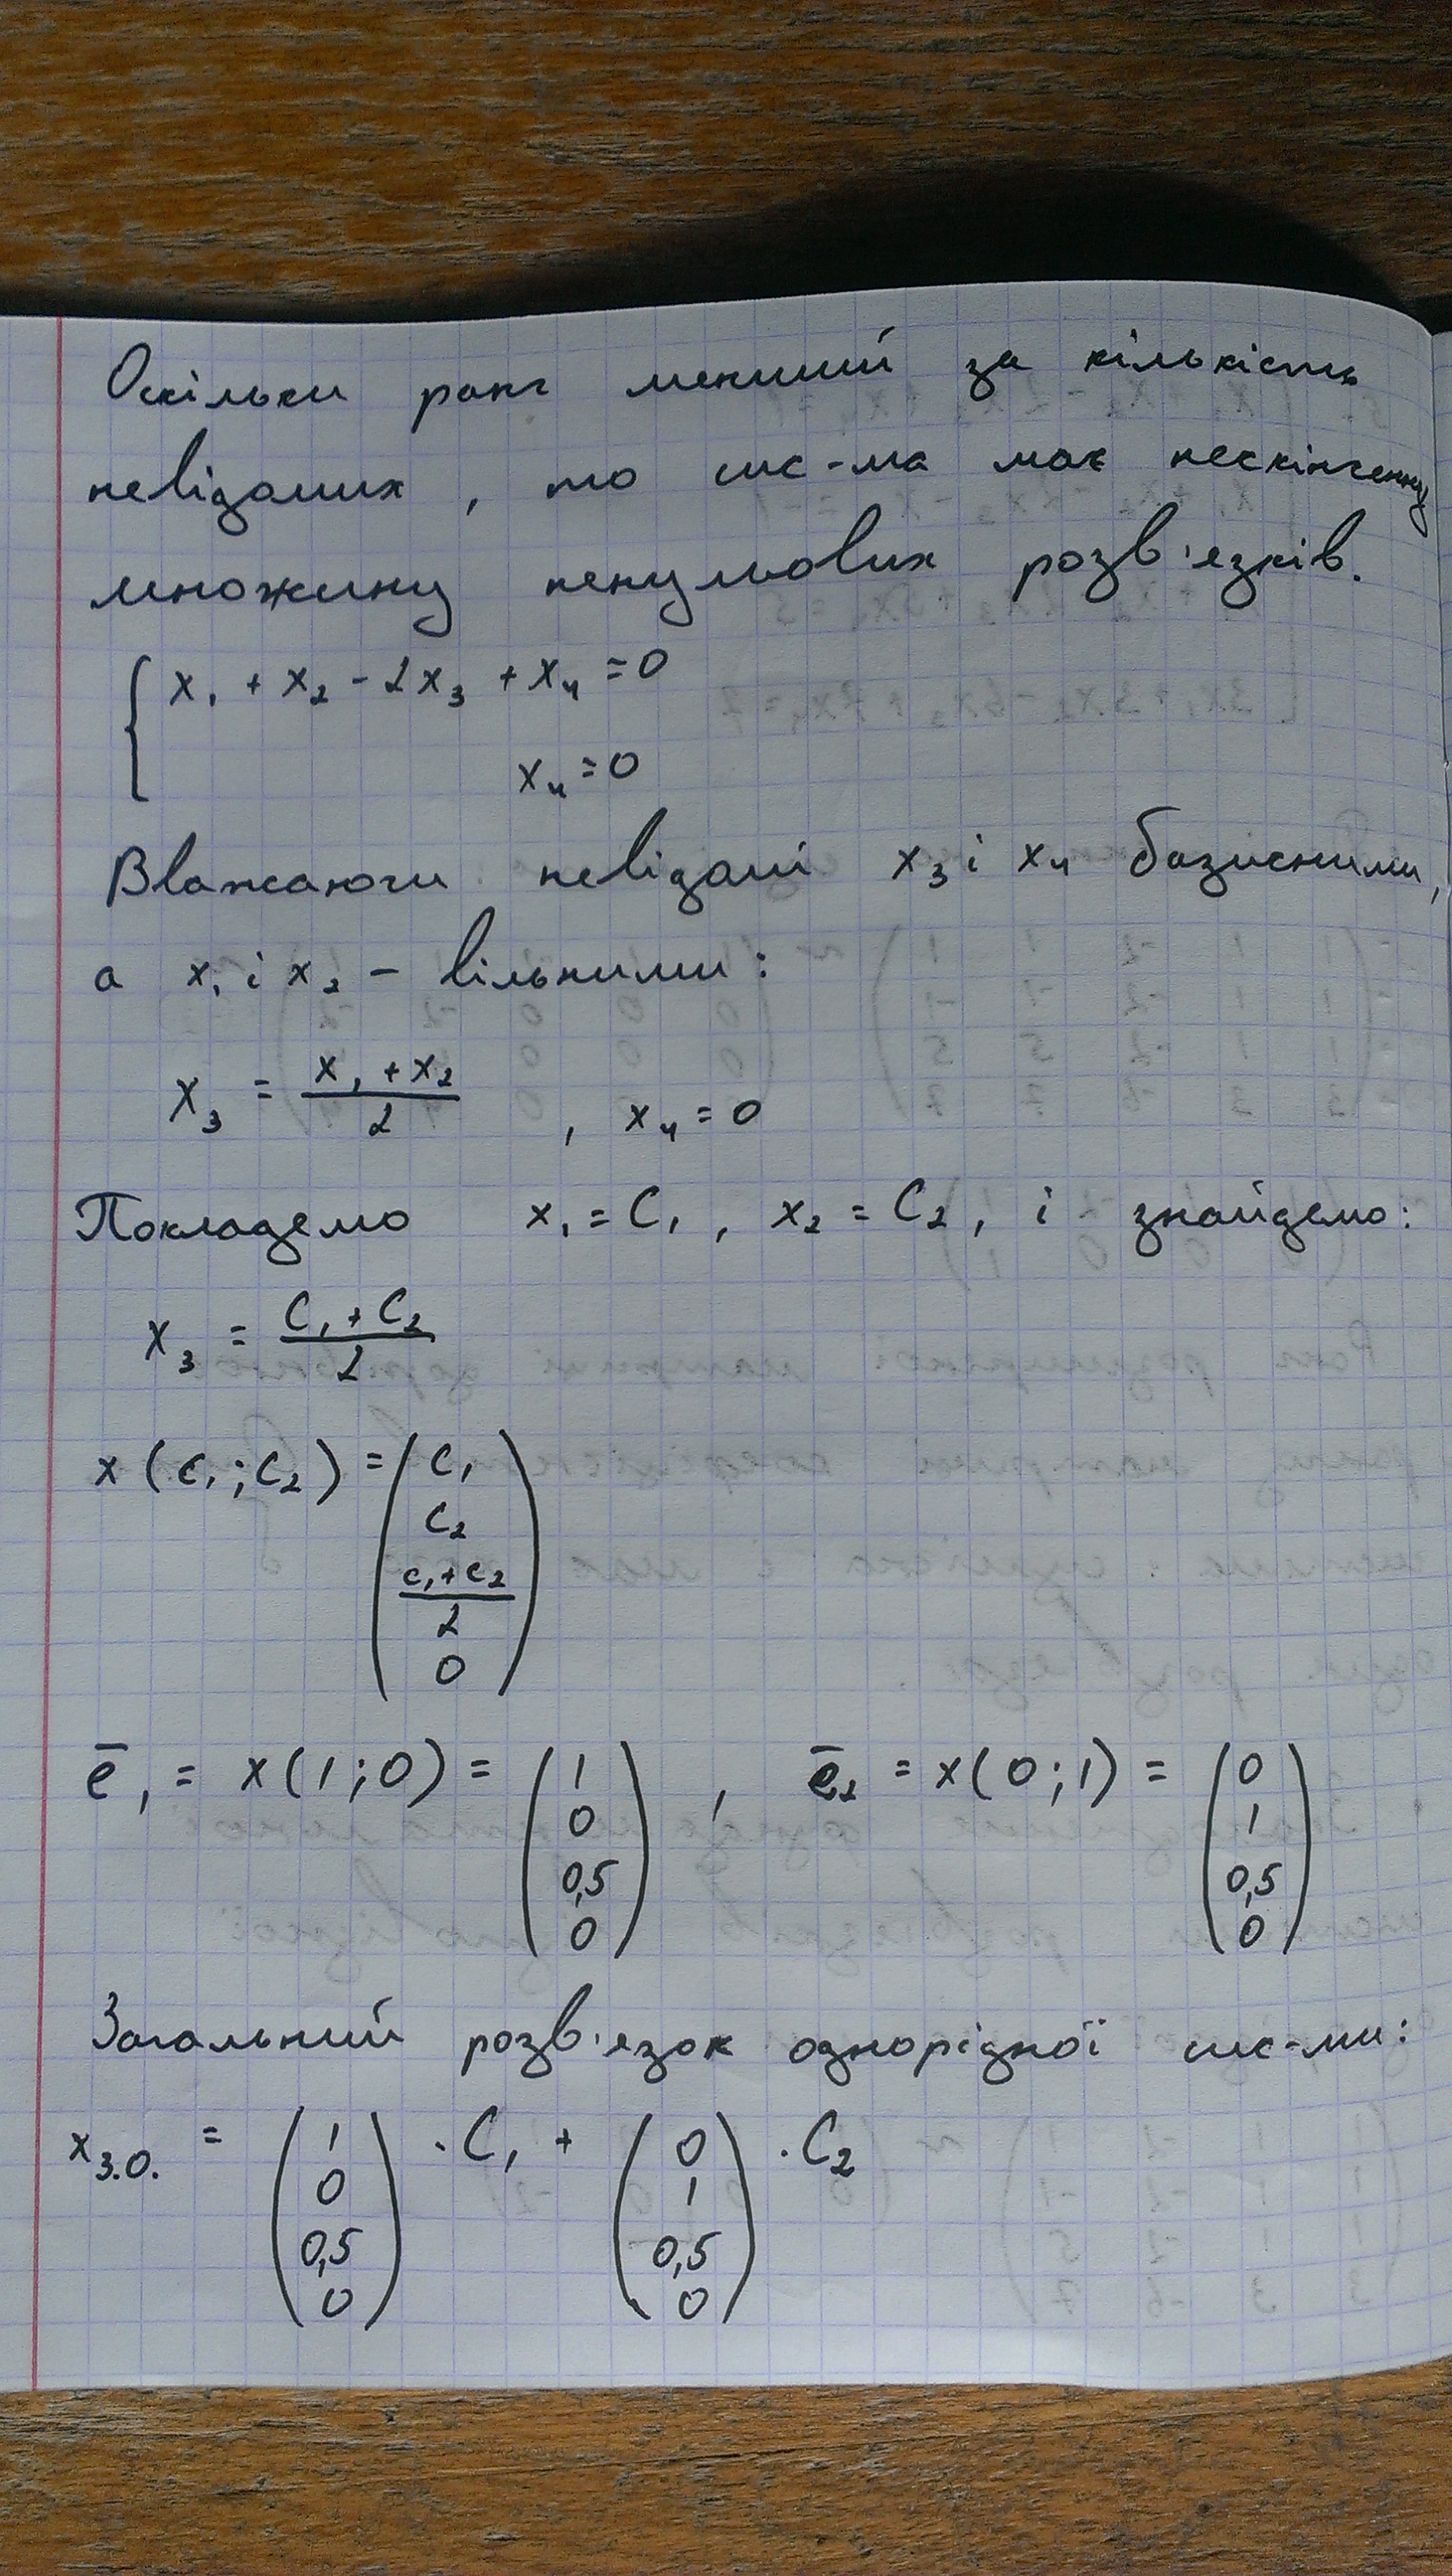 Оскільки ранг менший за кількість
невідомих, то сис-ма має нескінченну
множину ненульових розв'язків.
{ x₁ + x₂ - 2x₃ + x₄ = 0
x₄ = 0
Вважаючи невідомі x₃ і x₄ базисними,
а x₁ і x₂ - вільними:
x₃ = (x₁ + x₂)/2 , x₄ = 0
Покладемо x₁ = C₁, x₂ = C₂, і знайдемо:
x₃ = (C₁ + C₂)/2
x(c₁; c₂) = (C₁
C₂
(c₁ + c₂)/2
0)
e̅₁ = x(1; 0) = (1 0 0,5 0) , e̅₂ = x(0; 1) = (0 1 0,5 0)
Загальний розв'язок однорідної сис-ми:
x з.о. = (1 0 0,5 0) · C₁ + (0 1 0,5 0) · C₂